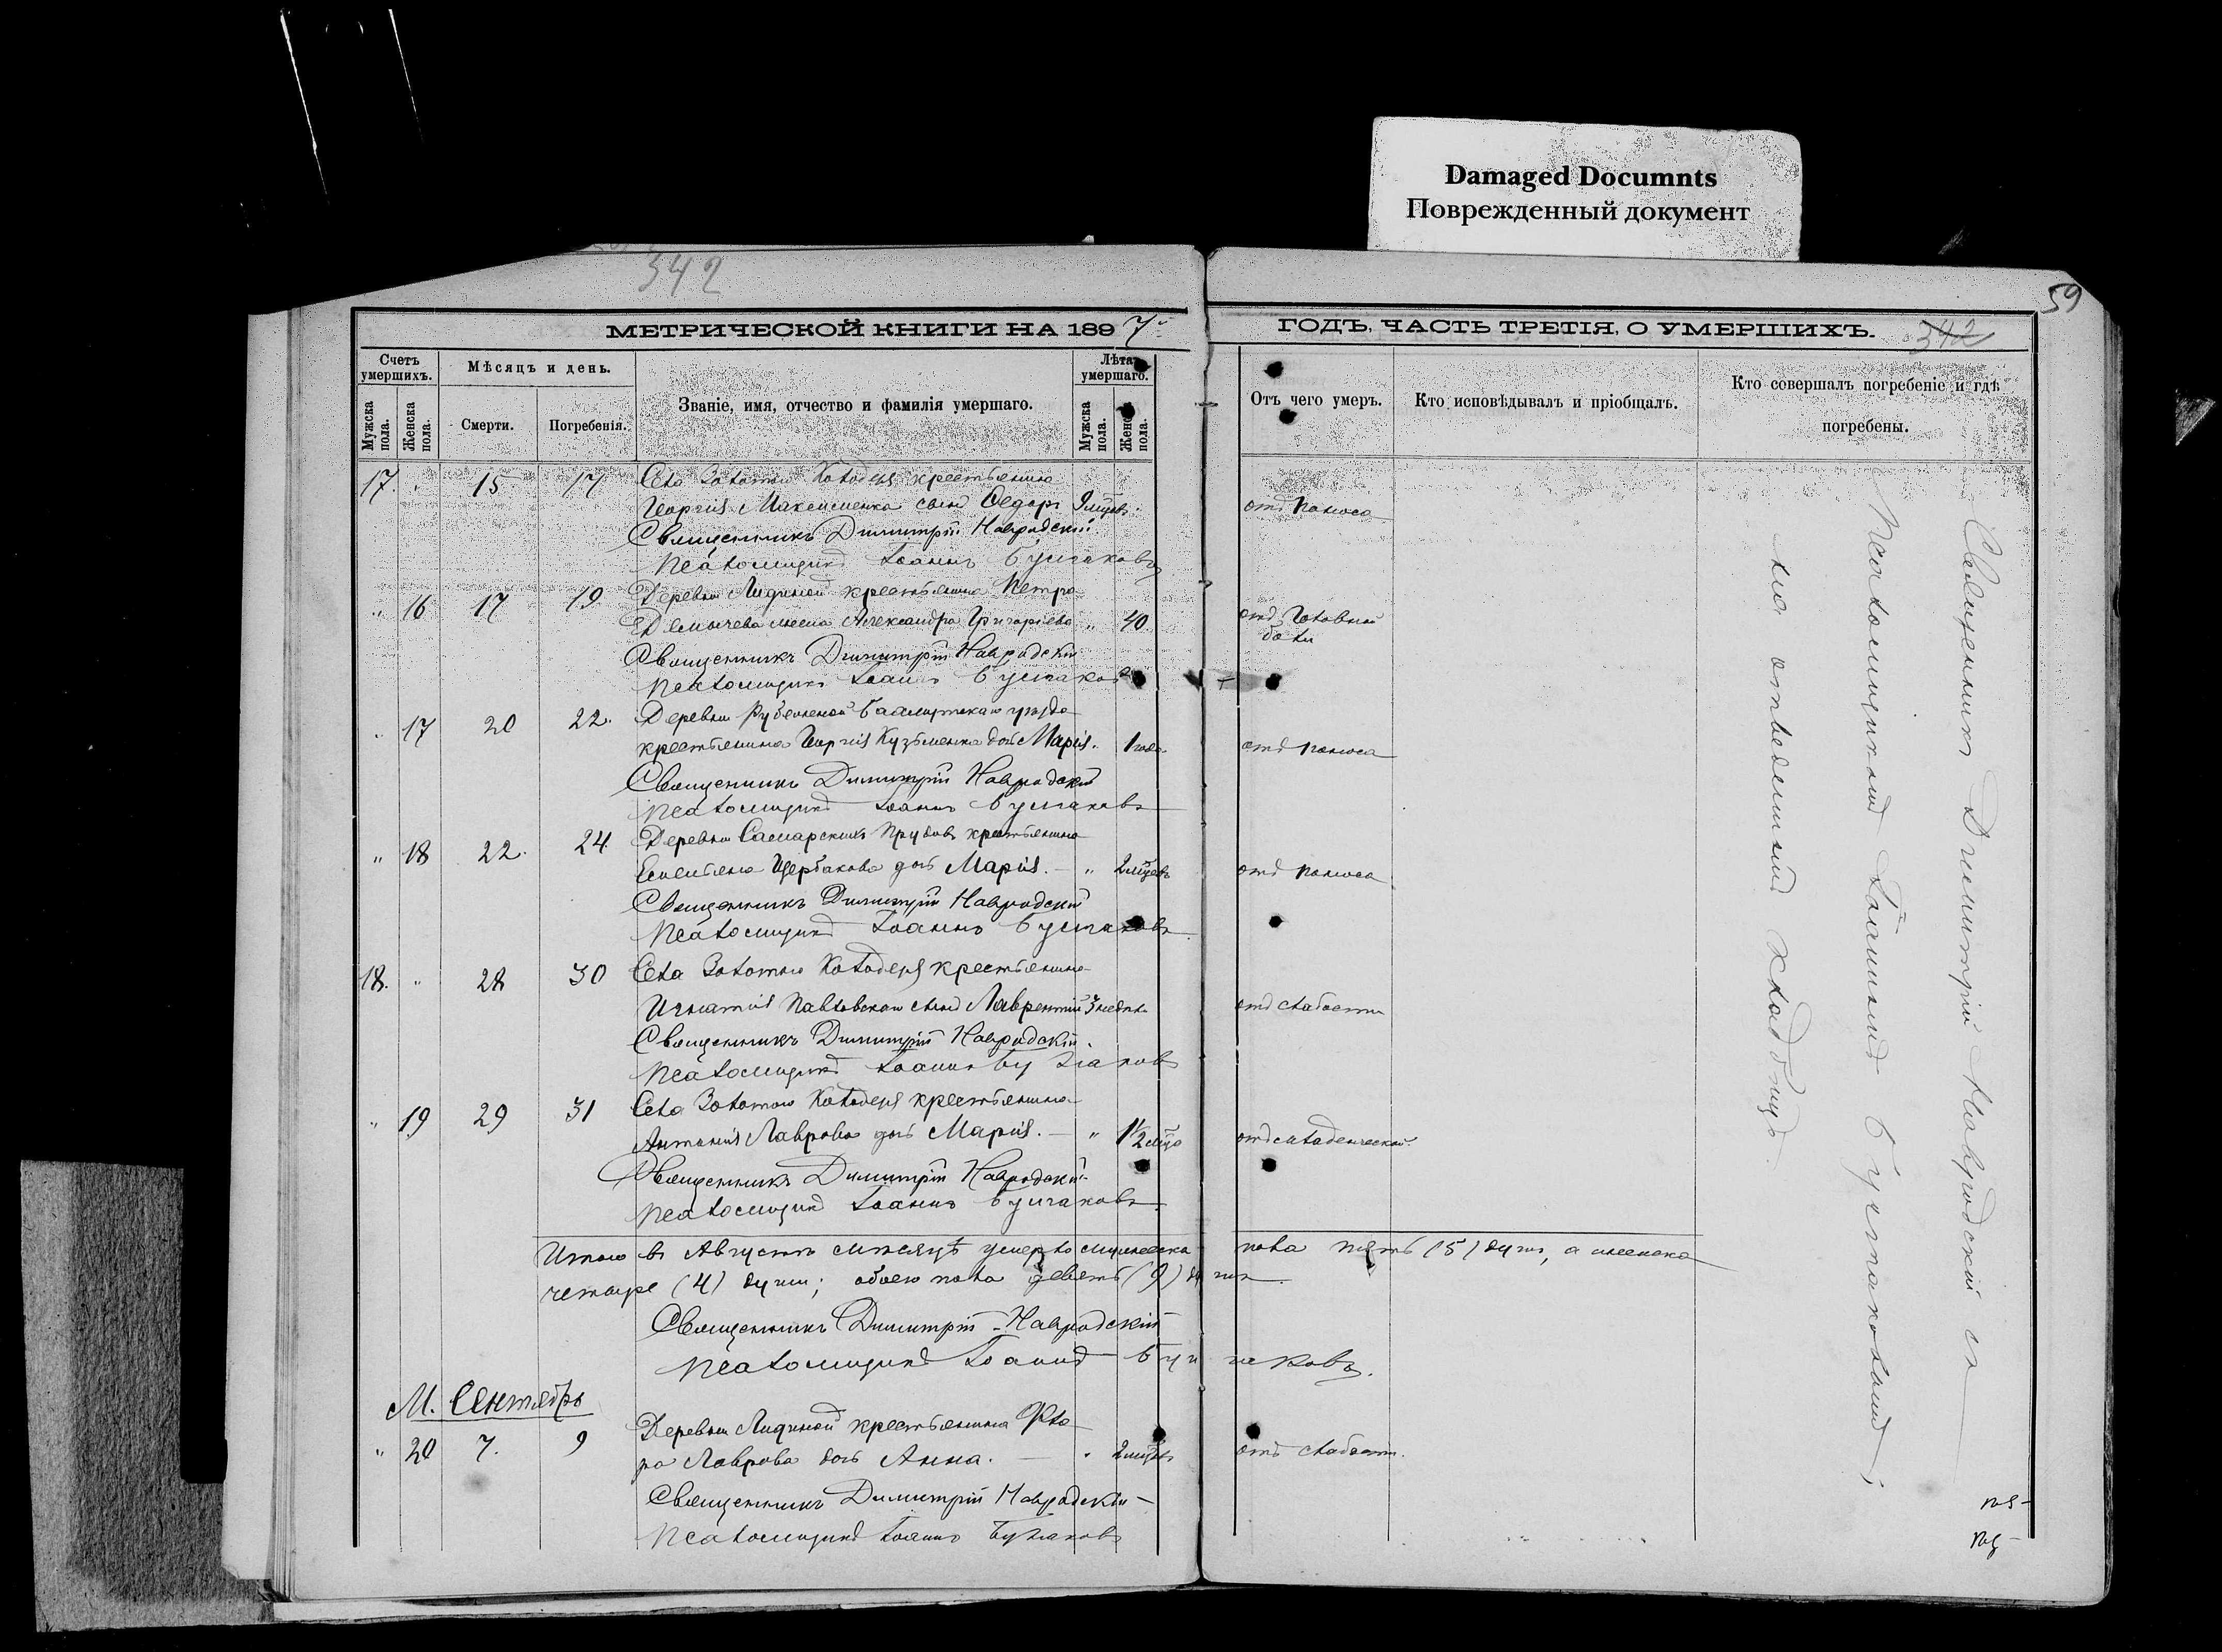 Damaged Documnts
Поврежденный документ
342
59
МЕТРИЧЕСКОЙ КНИГИ НА 1897
ГОДЪ, ЧАСТЬ ТРЕТІЯ, О УМЕРШИХЪ.
342
Счетъ умершихъ.
Мѣсяцъ и день.
Званіе, имя, отчество и фамилія умершаго.
Лѣта умершаго.
Мужска пола.
Женска пола.
Смерти.
Погребенія.
Мужска пола.
Женск пола.
Отъ чего умеръ.
Кто исповѣдывалъ и пріобщалъ.
Кто совершалъ погребеніе и гдѣ
погребены.
17. " 15 17 Села Золотого Колодезя крестьянина
Георгія Максименка сынъ Ѳедоръ 9 мцевъ. отъ поноса
Священникъ Димитрій Навродскій
Псаломщикъ Іоаннъ Булгаковъ
" 16 17 19 Деревни Лидиной крестьянина Петра
жена Александра Григорьева " 40 отъ головной
боли
Священникъ Димитрій Навродскій
Псаломщикъ Іоаннъ Булгаковъ
" 17 20 22. Деревни Бахмутскаго уѣзда
крестьянина Георгія Кузьменка дочь Марія. 1 года отъ поноса
Священникъ Димитрій Навродскій
Псаломщикъ Іоаннъ Булгаковъ
" 18 22. 24 Деревни Самарскихъ Прудовъ крестьянина
Емельяна Щербакова дочь Марія. " 2 мцевъ отъ поноса
Священникъ Димитрій Навродскій
Псаломщикъ Іоаннъ Булгаковъ
18. " 28 30 Села Золотого Колодезя крестьянина
Игнатія Павловскаго сынъ Лаврентій 3 недѣль отъ слабости
Священникъ Димитрій Навродскій.
Псаломщикъ Іоаннъ Булгаковъ
" 19 29 31 Села Золотого Колодезя крестьянина
Антонія Лаврова дочь Марія. " 1½ мца отъ младенческой
Священникъ Димитрій Навродскій
Псаломщикъ Іоаннъ Булгаковъ
Итого въ Августѣ мѣсяцѣ умерло мужеска пола пять (5) душъ, а женска
четыре (4) души; обоего пола девять (9) душъ.
Священникъ Димитрій Навродскій
Псаломщикъ Іоаннъ Булгаковъ.
М. Сентябрь
" 20 7. 9 Деревни Лидиной крестьянина Фло
ра Лаврова дочь Анна. " 2 мцевъ отъ слабости.
Священникъ Димитрій Навродскій
Псаломщикъ Іоаннъ Булгаковъ
Священникъ Димитрій Навродскій съ
Псаломщикомъ Іоанномъ Булгаковымъ;
на отведенномъ кладбищѣ.